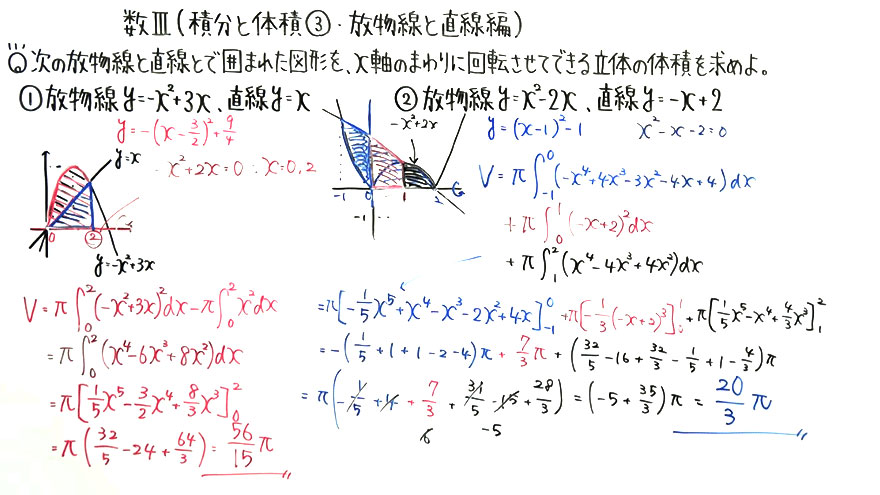 数Ⅲ(積分と体積③・放物線と直線編)
Q 次の放物線と直線とで囲まれた図形を、x軸のまわりに回転させてできる立体の体積を求めよ。
①放物線 y=-x²+3x、直線 y=x
y=-(x-3/2)²+9/4
-x²+2x=0 ∴x=0,2
y=x
0 2
y=-x²+3x
V=π∫₀²(-x²+3x)²dx-π∫₀²x²dx
=π∫₀²(x⁴-6x³+8x²)dx
=π[1/5x⁵-3/2x⁴+8/3x³]₀²
=π(32/5-24+64/3)=56/15π
②放物線 y=x²-2x、直線 y=-x+2
-x²+2x
-1 0 1 2
-1
y=(x-1)²-1 x²-x-2=0
V=π∫₋₁⁰(-x⁴+4x³-3x²-4x+4)dx
+π∫₀¹(-x+2)²dx
+π∫₁²(x⁴-4x³+4x²)dx
=π[-1/5x⁵+x⁴-x³-2x²+4x]₋₁⁰+π[-1/3(-x+2)³]₀¹+π[1/5x⁵-x⁴+4/3x³]₁²
=-(1/5+1+1-2-4)π+7/3π+(32/5-16+32/3-1/5+1-4/3)π
=π(-1/5+4+7/3+31/5-15+28/3)=(-5+35/3)π=20/3π
6 -5